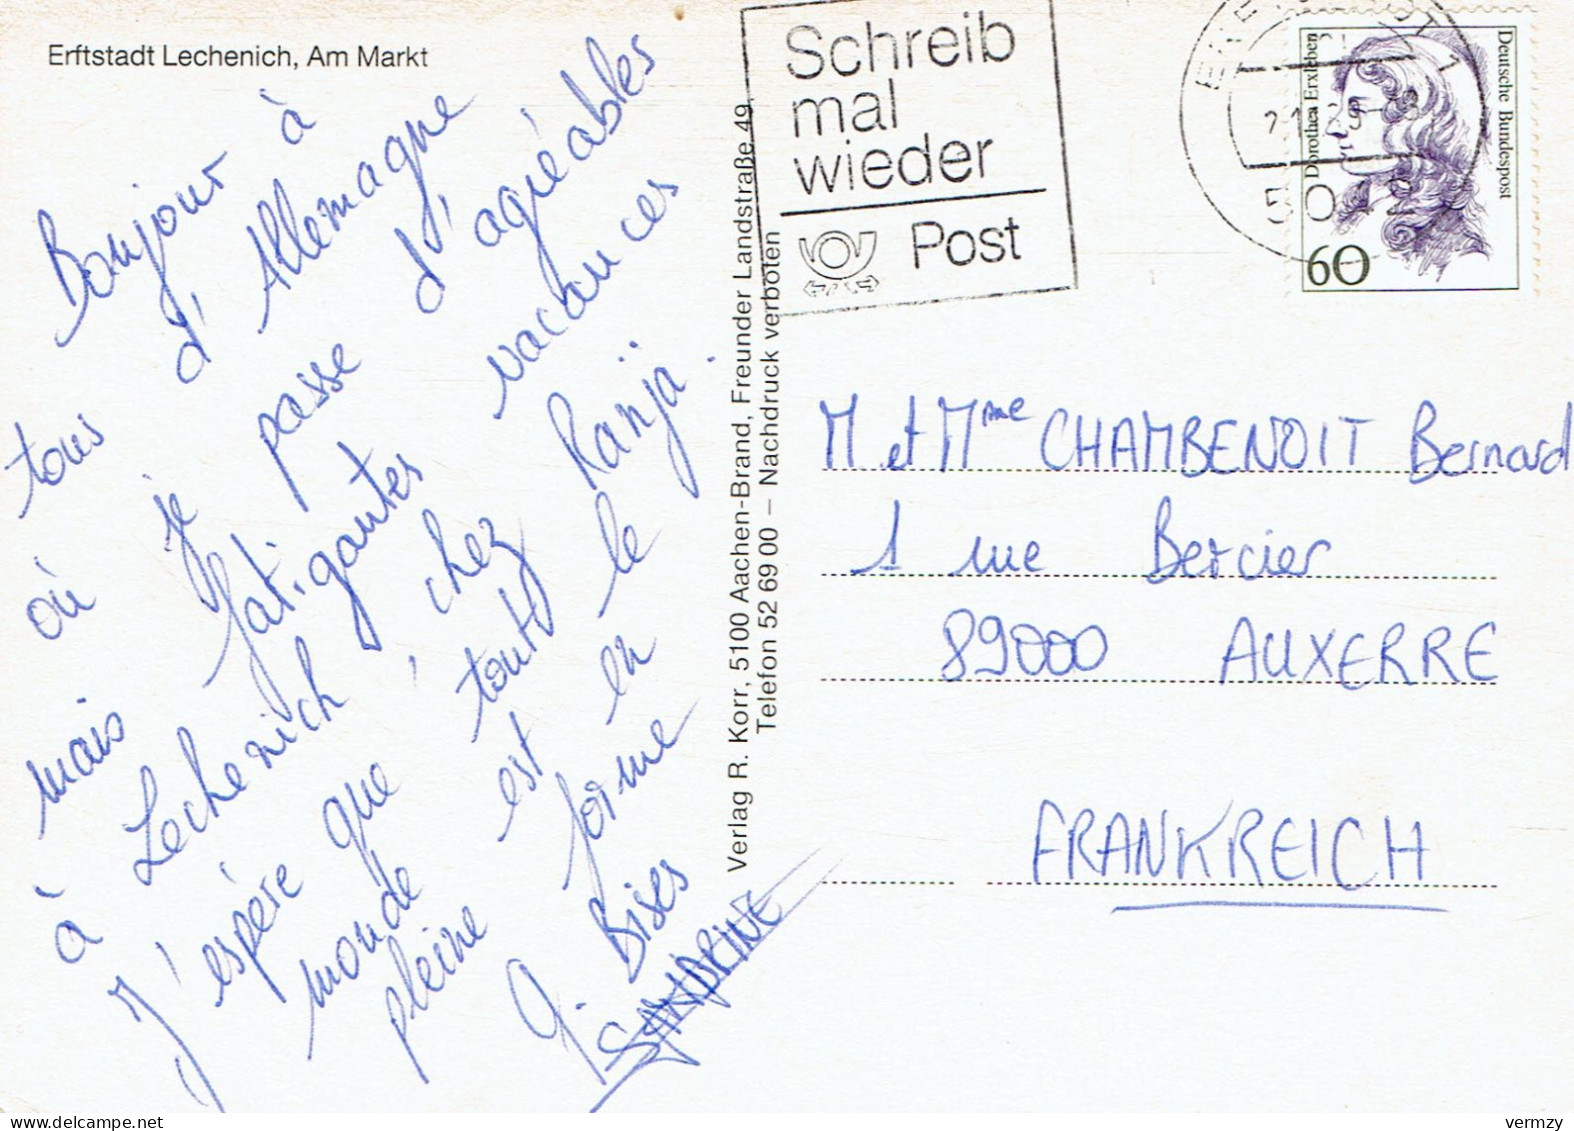 Erftstadt Lechenich, Am Markt
Bonjour à
tous d'Allemagne
où je passe d'agréables
mais fatigantes vacances
à Lechenich, chez Ranja.
J'espère que tout le
monde est en
pleine forme
Bises
SANDRINE
Verlag R. Korr, 5100 Aachen-Brand, Freunder Landstraße 49,
Telefon 52 69 00 – Nachdruck verboten
Schreib
mal
wieder
Post
Deutsche Bundespost
Dorothea Erxleben
60
M et Mme CHAMBENOIT Bernard
1 rue Bercier
89000 AUXERRE
FRANKREICH
www.delcampe.net
vermzy